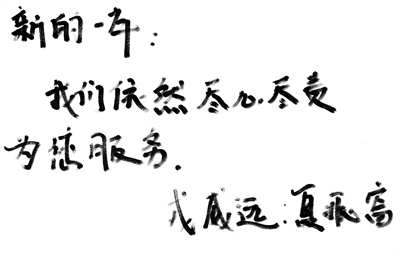 新的一年:
我们依然尽心尽责
为您服务.
戍威远:夏飛富